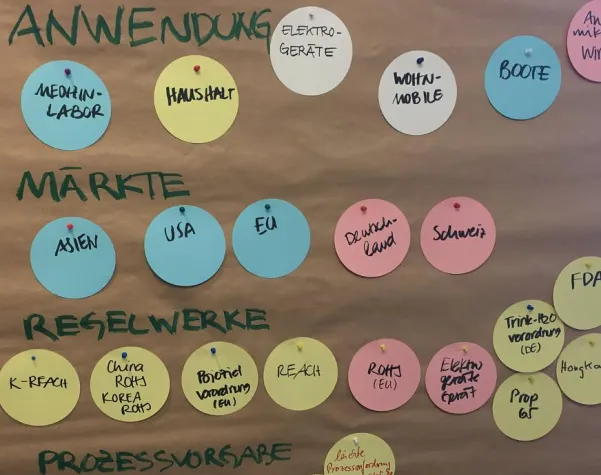 ANWENDUNG
ELEKTRO-
GERÄTE
MEDIZIN-
LABOR
HAUSHALT
WOHN-
MOBILE
BOOTE
MÄRKTE
ASIEN
USA
EU
Deutsch-
land
Schweiz
REGELWERKE
FDA
Trink-H2O
verordnung
(DE)
K-REACH
China
ROHS
KOREA
ROHS
Biozid
Verordnung
(EU)
REACH
ROHS
(EU)
Elektro
geräte
Prop
65
PROZESSVORGABE